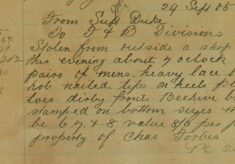 29 Sept 05
From Supt Duke
To J & B Divisions
Stolen from outside a shop
this evening about 7 oclock
pairs of mens heavy lace b
hob nailed tips on heels pl
toes, front Beehive b
stamped on bottom sizes
be 6. 7. & 8 value 8/6 pair
property of Chas Forbes